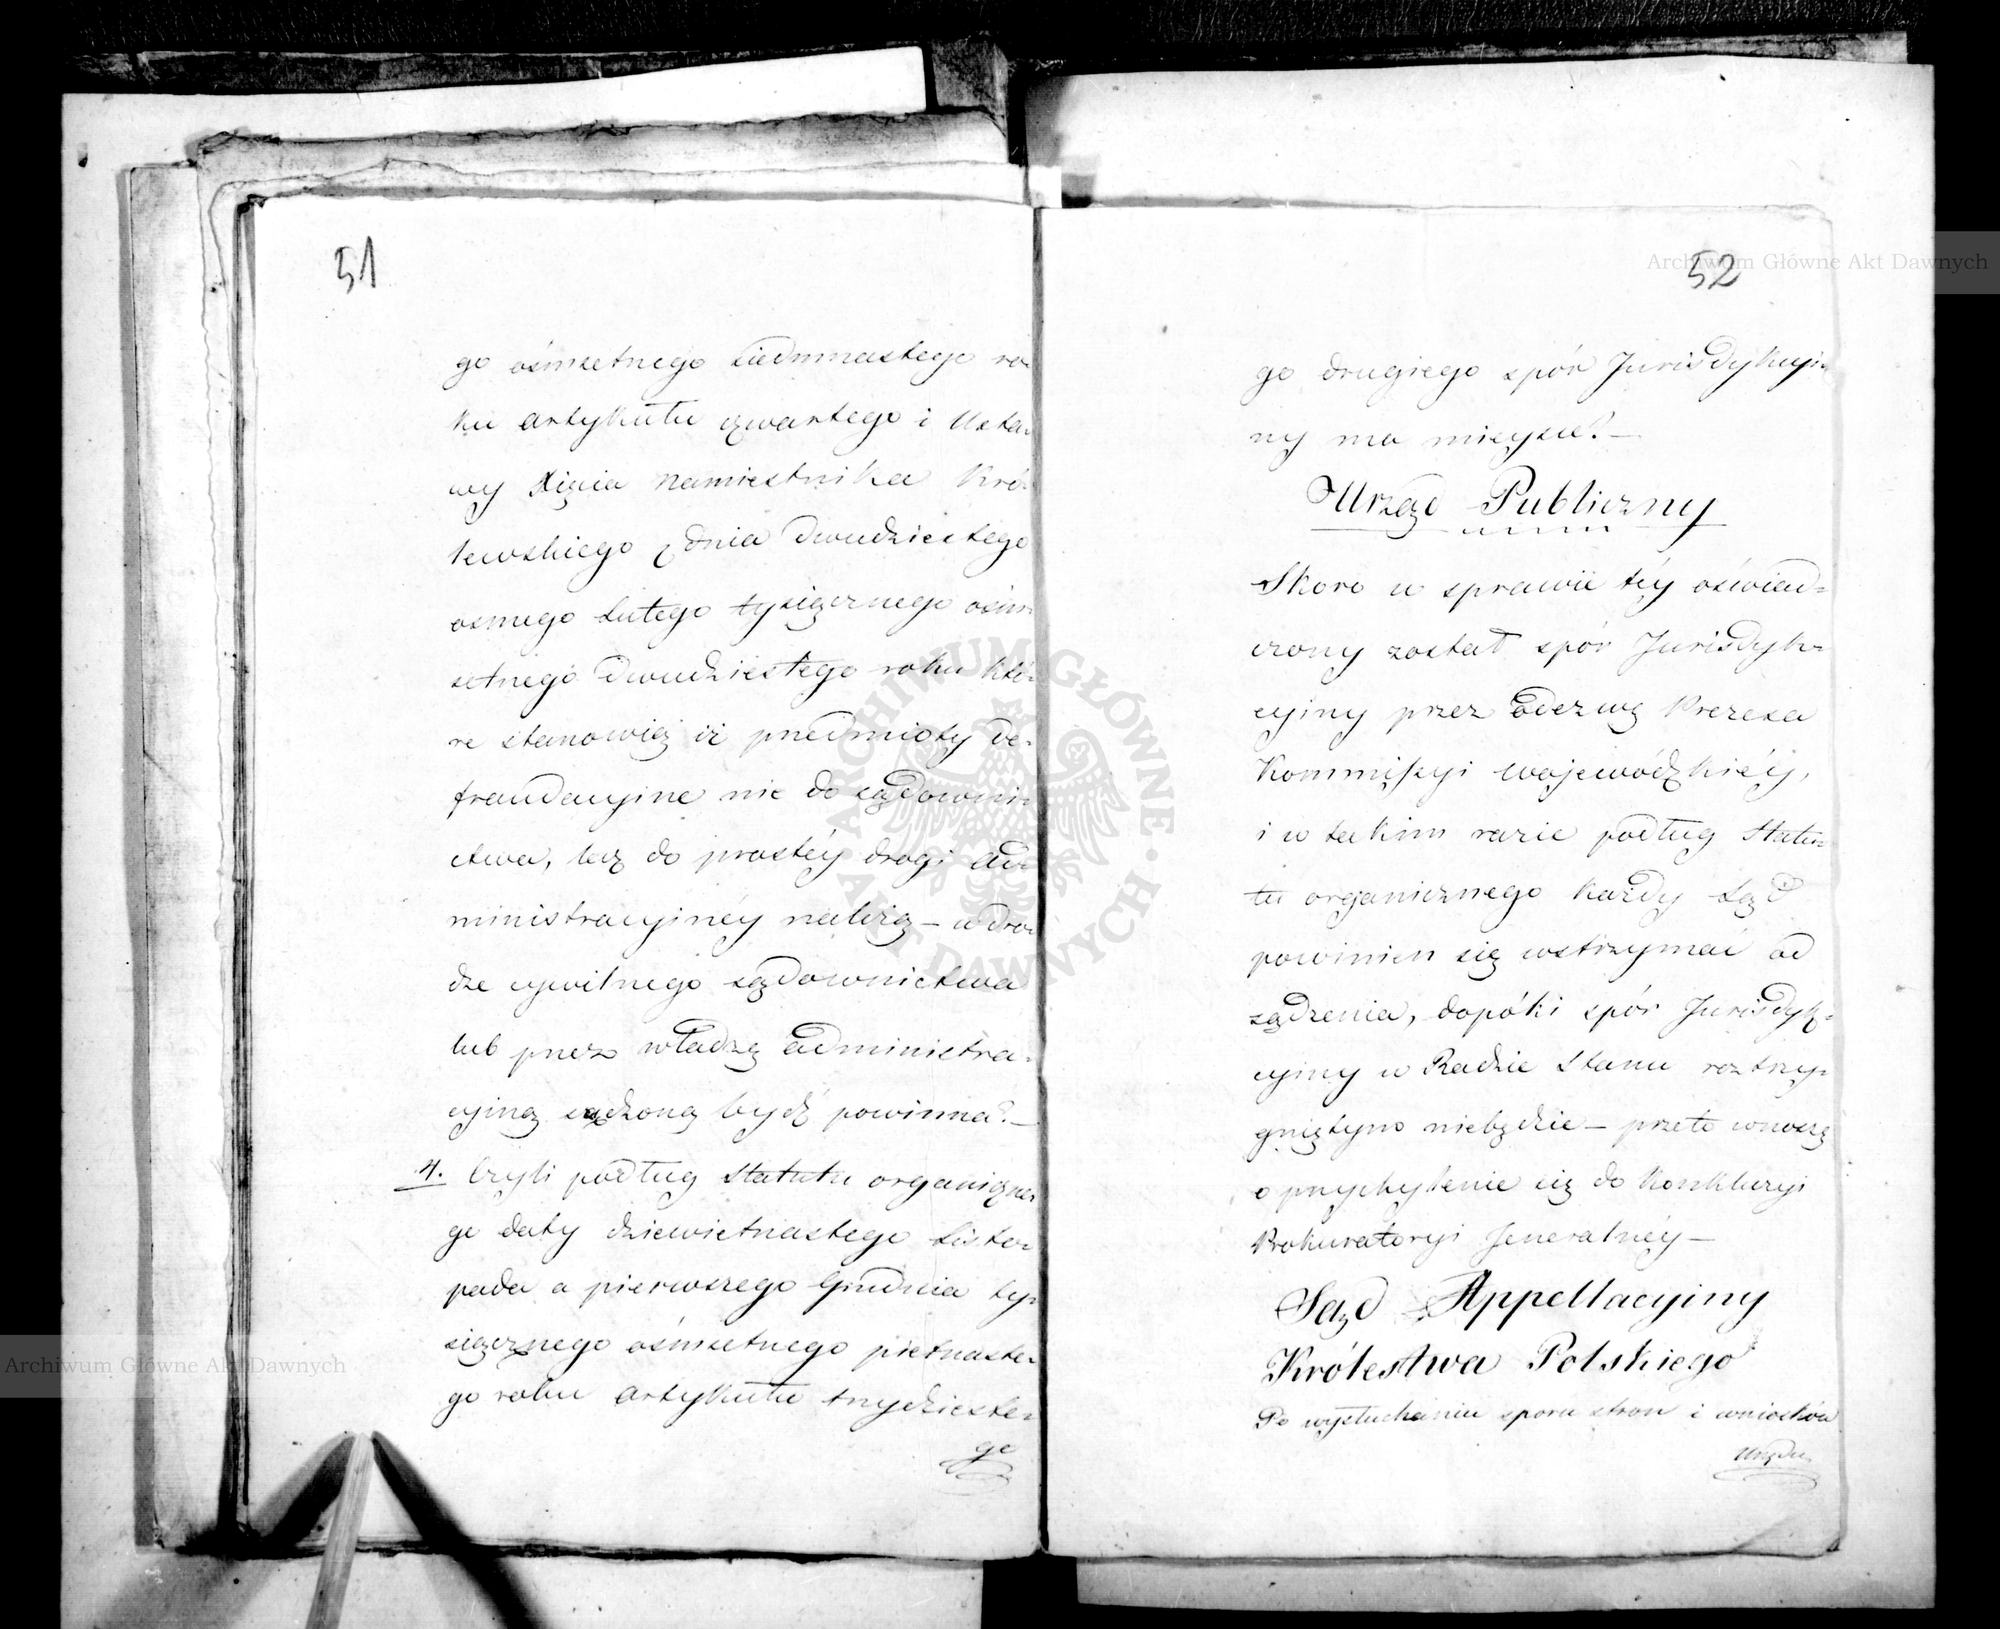 51
go ośmsetnego siedmnastego ro-
ku artykułu czwartego i Usta-
wy Xięcia Namiestnika Kró-
lewskiego z dnia dwudziestego
osmego Lutego tysiącznego ośm-
setnego dwudziestego roku któ-
re stanowią iż przedmioty de-
fraudacyine nie do sądowni-
ctwa, lecz do prostéy drogi ad-
ministracyinéy należą – w dro-
dze cywilnego sądownictwa
lub przez władzę administra-
cyiną sądzoną bydź powinna? –
4. Czyli podług Statutu organiczne-
go daty dziewiętnastego Listo-
pada a pierwszego Grudnia ty-
siącznego ośmsetnego piętnaste-
go roku artykułu trzydzieste-
go
52
go drugiego spór Jurisdykcyi-
ny ma mieysce? –
Urząd Publiczny
Skoro w sprawie téy oświad-
czony został spór Jurisdyk-
cyiny przez odezwę Prezesa
Kommissyi Wojewódzkiéy,
i w takim razie podług Statu-
tu organicznego każdy Sąd
powinien się wstrzymać od
sądzenia, dopóki spór Jurisdyk-
cyiny w Radzie Stanu roztrzy-
gniętym niebędzie – przeto wnoszę
o przychylenie się do Konkluzyi
Prokuratoryi Jeneralnéy –
Sąd Appellacyiny
Królestwa Polskiego
Po wysłuchaniu sporu stron i wniosków
Urzędu
Archiwum Główne Akt Dawnych
Archiwum Główne Akt Dawnych
ARCHIWUM GŁÓWNE AKT DAWNYCH